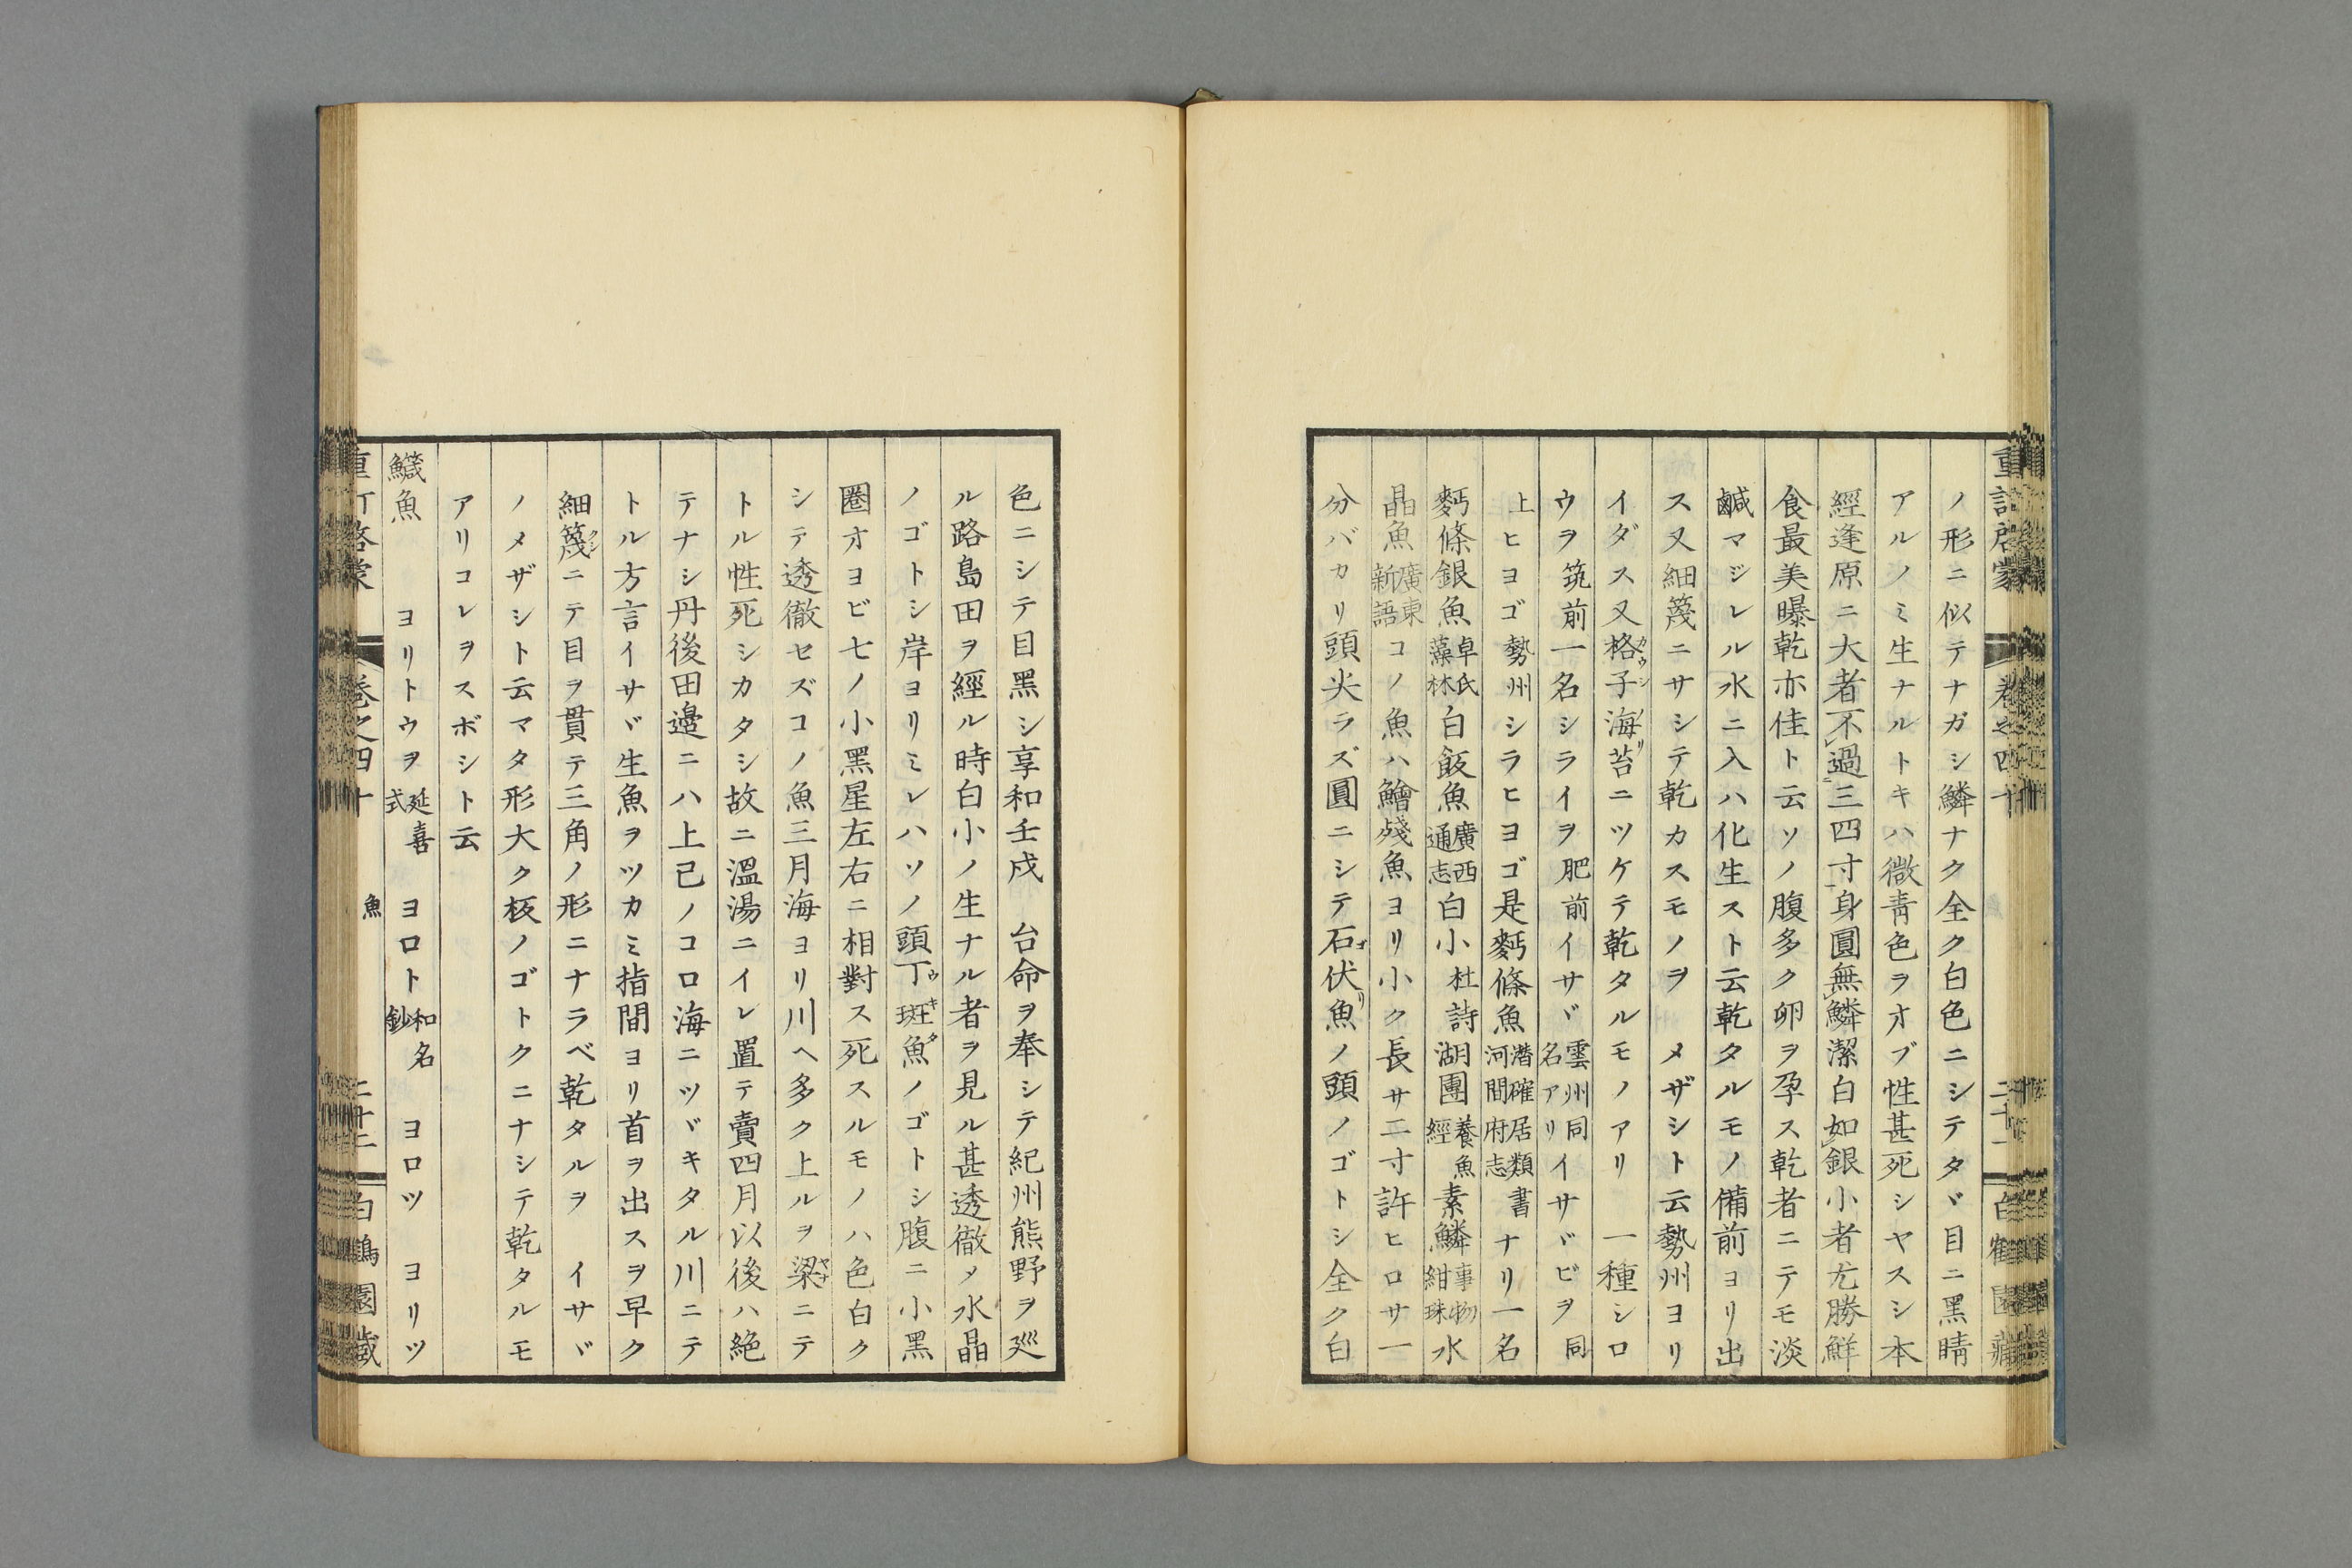 ノ形ニ似テナガシ鱗ナク全ク白色ニシテタヾ目ニ黒睛
アルノミ生ナルトキハ微青色ヲオブ性甚死シヤスシ本
經逢原ニ大者不過三四寸身圓無鱗潔白如銀小者尤勝鮮
食最美曝乾亦佳ト云ソノ腹多ク卵ヲ孕ス乾者ニテモ淡
鹹マジレル水ニ入ハ化生スト云乾タルモノ備前ヨリ出
ス又細篾ニサシテ乾カスモノヲ メザシト云勢州ヨリ
イダス又格子海苔ニツケテ乾タルモノアリ 一種シロ
ウヲ筑前一名シライヲ肥前イサヾ雲州同名アリ同イサヾビヲ同
上ヒヨゴ勢州シラヒヨゴ是麪條魚潛確居類書河間府志ナリ一名
麪條銀魚卓氏藻林白飯魚廣西通志白小杜詩湖團養魚經素鱗事物紺珠水
晶魚廣東新語コノ魚ハ鱠殘魚ヨリ小ク長サ二寸許ヒロサ一
分バカリ頭尖ラズ圓ニシテ石伏魚ノ頭ノゴトシ全ク白
色ニシテ目黑シ享和壬戌 台命ヲ奉シテ紀州熊野ヲ廵
ル路島田ヲ經ル時白小ノ生ナル者ヲ見ル甚透徹メ水晶
ノゴトシ岸ヨリミレハソノ頭丁斑魚ノゴトシ腹ニ小黑
圈オヨビ七ノ小黑星左右ニ相對ス死スルモノハ色白ク
シテ透徹セズコノ魚三月海ヨリ川ヘ多ク上ルヲ梁ニテ
トル性死シカタシ故ニ溫湯ニイレ置テ賣四月以後ハ絶
テナシ丹後田邉ニハ上己ノコロ海ニツヾキタル川ニテ
トル方言イサヾ生魚ヲツカミ指間ヨリ首ヲ出スヲ早ク
細篾ニテ目ヲ貫テ三角ノ形ニナラベ乾タルヲ イサヾ
ノメザシト云マタ形大ク板ノゴトクニナシテ乾タルモ
アリコレヲスボシト云
鱵魚 ヨリトウヲ延喜式 ヨロト和名鈔 ヨロツ ヨリツ
魚